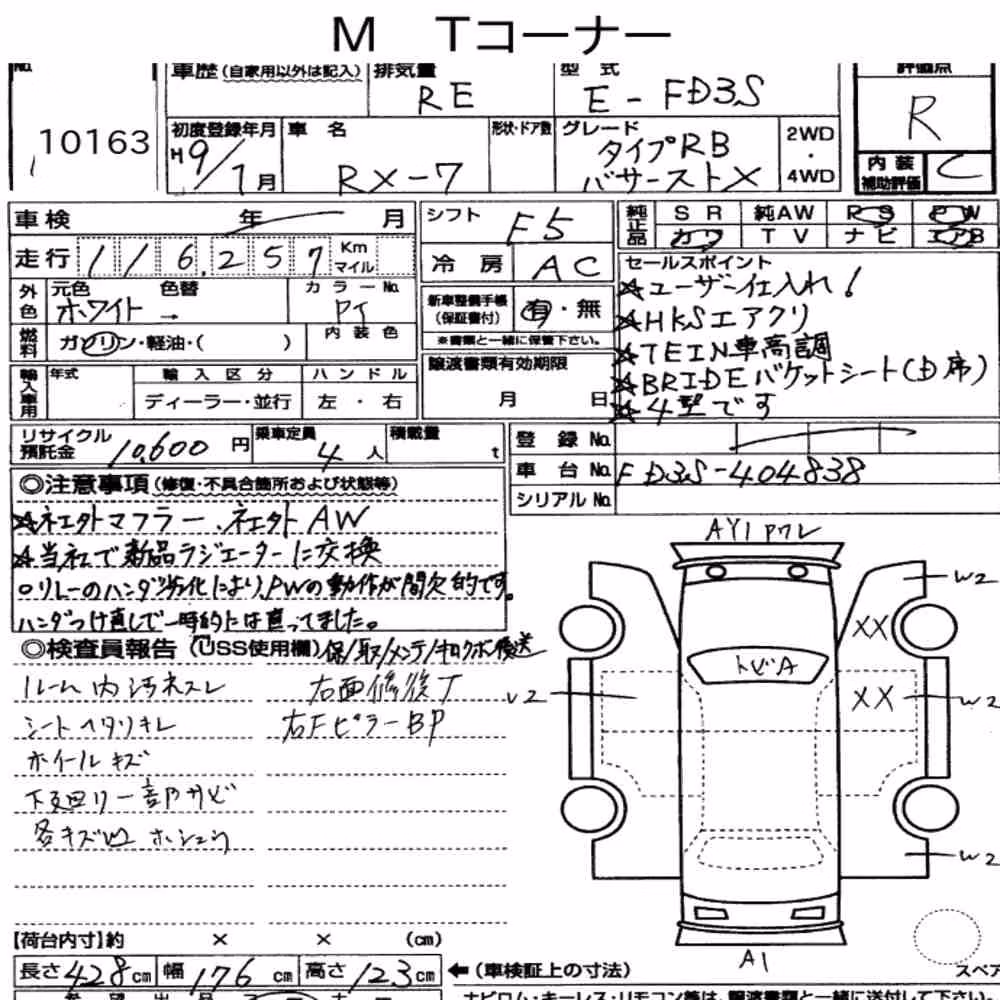 M Tコーナー
No.
10163
車歴 (自家用以外は記入)
排気量
RE
型 式
E-FD3S
評価点
R
初度登録年月
H9/1月
車 名
RX-7
形状・ドア数
グレード
タイプRB
バサーストX
2WD
・
4WD
内 装
補助評価
C
車検 年 月
走行 116,257 Km
マイル
シフト
F5
冷 房
AC
純正品
S R 純AW P S P W
カワ T V ナ ビ エアB
外色
元色 色替
ホワイト →
カ ラ ー No.
燃料
ガソリン・軽油・( )
内 装 色
新車整備手帳
(保証書付)
有・無
※書類と一緒に保管下さい。
セールスポイント
☆ユーザー仕入れ!
☆HKSエアクリ
☆TEIN車高調
☆BRIDEバケットシート(D席)
☆4型です
輸入車用
年式
輸 入 区 分
ディーラー・並行
ハ ン ド ル
左 ・ 右
譲渡書類有効期限
月 日
リサイクル
預託金
10,600 円
乗車定員
4人
積載量
t
登 録 No.
車 台 No.
FD3S-404838
シリアル No.
◎注意事項 (修復・不具合箇所および状態等)
☆社外マフラー、社外AW
☆当社で新品ラジエーターに交換
○リレーのハンダ劣化により、PWの動作が間欠的です。
ハンダつけ直しで一時的には直ってました。
◎検査員報告 (USS使用欄)
保/取/メンテ/キロクボ後送
ルーム内汚れスレ
右面修復了
シートヘタリキレ
右FピラーBP
ホイールキズ
下廻り一部サビ
各キズ凹 ホシュウ
AY1 ワレ
W2
XX
トビA
W2
XX
W2
W2
A1
【荷台内寸】約 × × (cm)
長さ 428 cm
幅 176 cm
高さ 123 cm
←(車検証上の寸法)
スペア